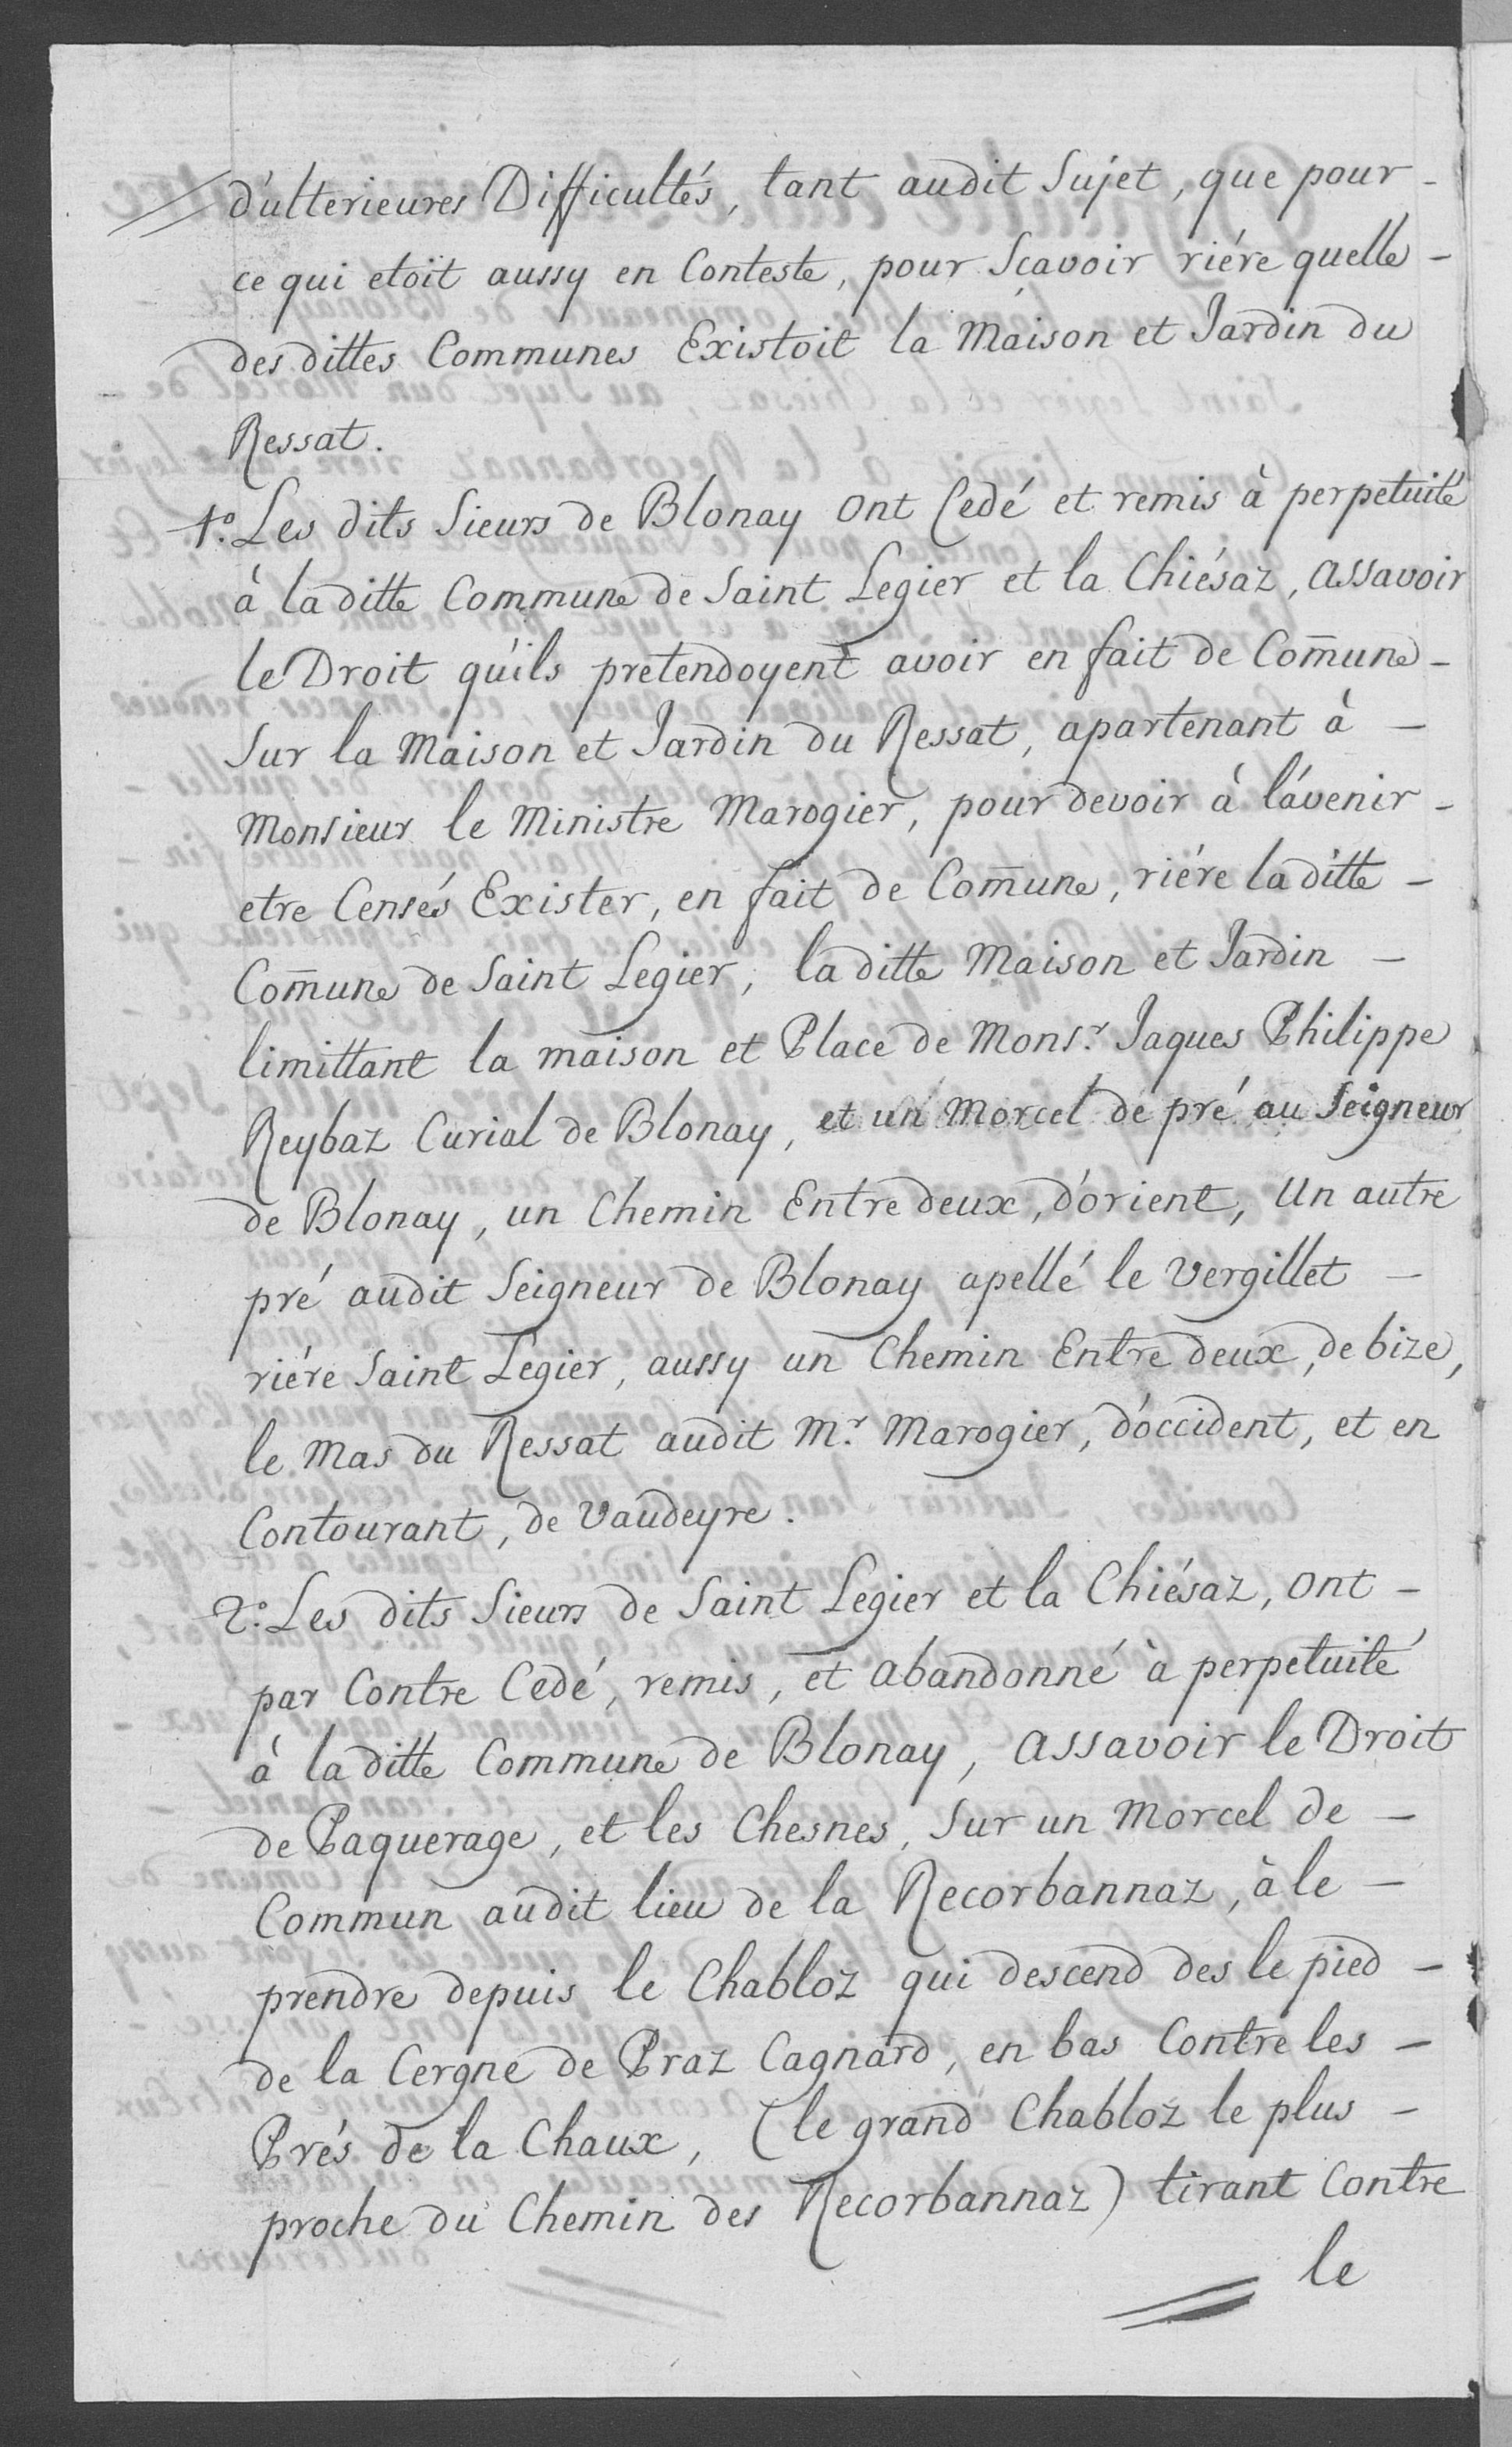 d'ulterieures Difficultés, tant audit Sujet, que pour -
ce qui etoit aussy en Conteste, pour Sçavoir riére quelle -
des dittes Communes Existoit la Maison et Jardin du
Ressat.
1.° Les dits Sieurs de Blonay Ont Cedé et remis à perpetuité
à la ditte Commune de Saint Legier et la Chiésaz, Assavoir
le Droit qu'ils pretendoyent avoir en fait de Com̄une -
Sur la Maison et Jardin du Ressat, apartenant à -
Monsieur le Ministre Marogier, pour devoir à l'avenir -
etre Censés Exister, en fait de Com̄une, riére la ditte -
Com̄une de Saint Legier, la ditte Maison et Jardin -
limittant la maison et Place de Mons.r Jaques Philippe
Reybaz Curial de Blonay, et un Morcel de pré au Seigneur
de Blonay, un Chemin Entre deux, d'orient, Un autre
pré audit Seigneur de Blonay apellé le Vergillet -
riére Saint Legier, aussy un Chemin Entre deux, de bize,
le Mas du Ressat audit M.r Marogier, d'occident, et en
Contourant, de Vaudeyre.
2.° Les dits Sieurs de Saint Legier et la Chiésaz, Ont -
par Contre Cedé, remis, et Abandonné à perpetuité
à la ditte Commune de Blonay, Assavoir le Droit
de Paquerage, et les Chesnes, Sur un Morcel de -
Commun audit lieu de la Recorbannaz, à le -
prendre depuis le Chabloz qui descend des le pied -
de la Cergne de Praz Cagnard, en bas Contre les -
Prés de la Chaux, (le grand Chabloz le plus -
proche du Chemin des Recorbannaz) tirant Contre
le